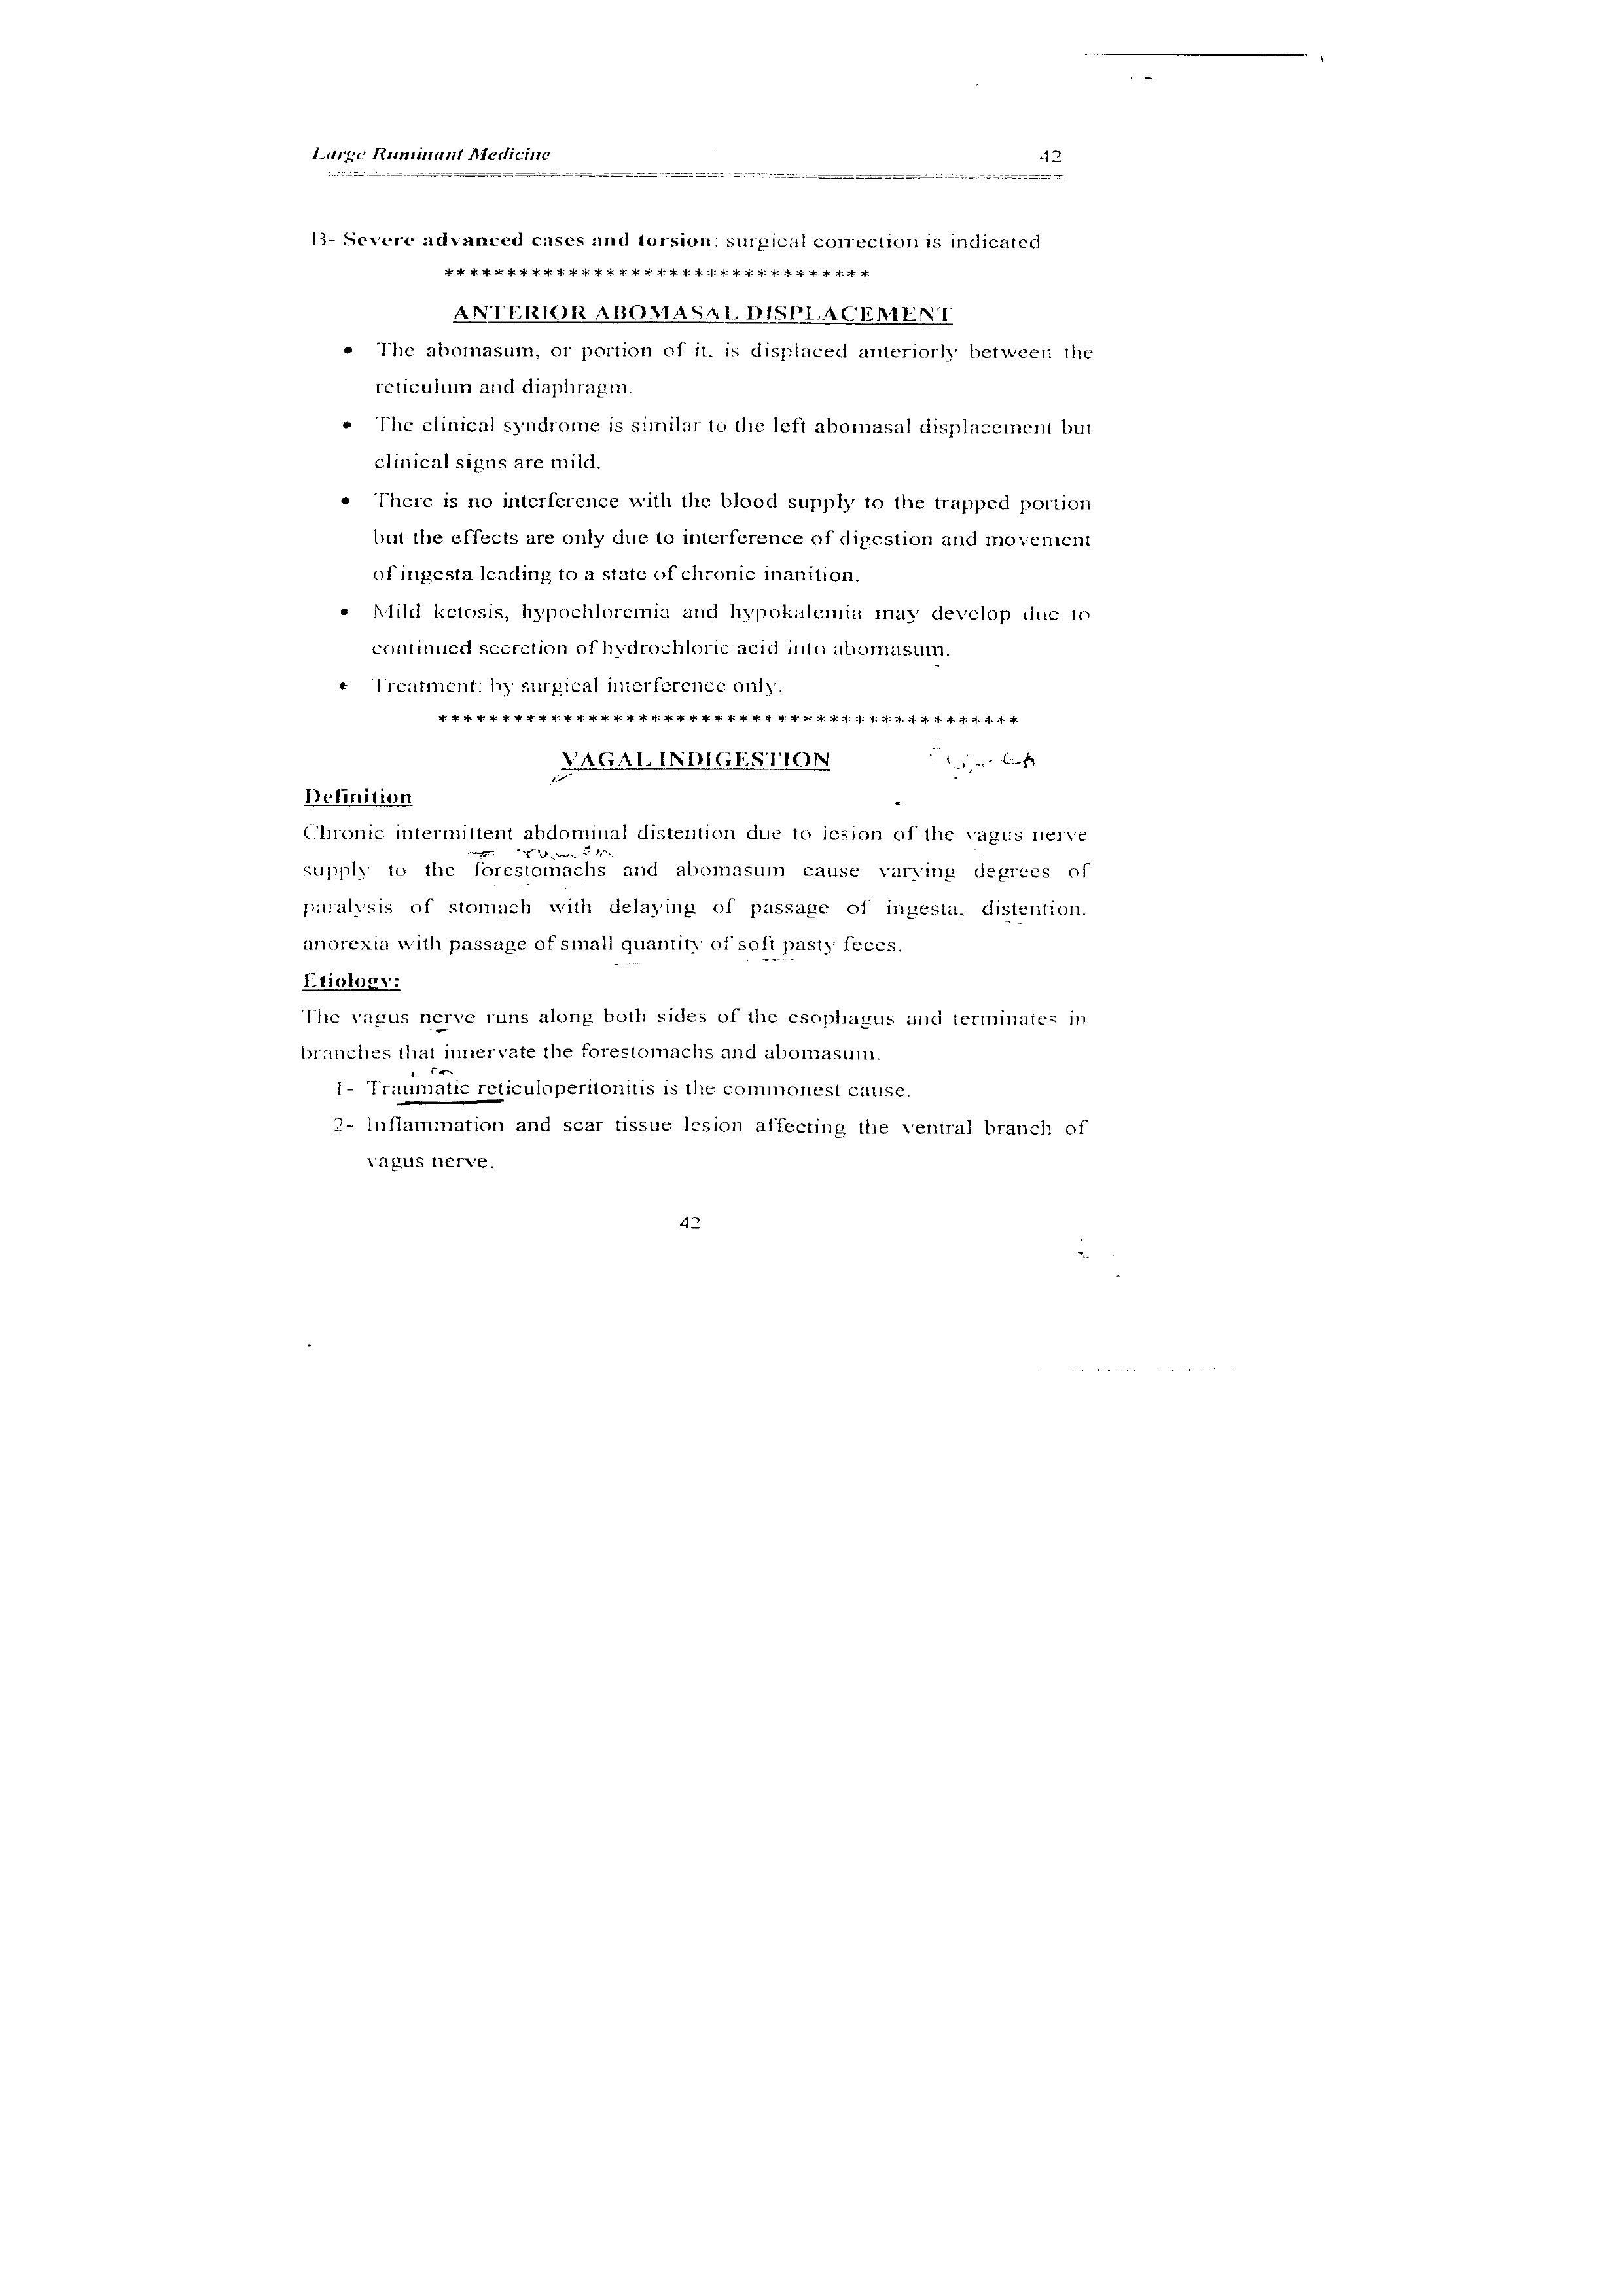 Large Ruminant Medicine 42
B- Severe advanced cases and torsion: surgical correction is indicated
**********************************
ANTERIOR ABOMASAL DISPLACEMENT
• The abomasum, or portion of it, is displaced anteriorly between the
reticulum and diaphragm.
• The clinical syndrome is similar to the left abomasal displacement but
clinical signs are mild.
• There is no interference with the blood supply to the trapped portion
but the effects are only due to interference of digestion and movement
of ingesta leading to a state of chronic inanition.
• Mild ketosis, hypochloremia and hypokalemia may develop due to
continued secretion of hydrochloric acid into abomasum.
• Treatment: by surgical interference only.
**********************************************
VAGAL INDIGESTION
Definition
Chronic intermittent abdominal distention due to lesion of the vagus nerve
rumen
supply to the forestomachs and abomasum cause varying degrees of
paralysis of stomach with delaying of passage of ingesta, distention,
anorexia with passage of small quantity of soft pasty feces.
Etiology:
The vagus nerve runs along both sides of the esophagus and terminates in
branches that innervate the forestomachs and abomasum.
1- Traumatic reticuloperitonitis is the commonest cause.
2- Inflammation and scar tissue lesion affecting the ventral branch of
vagus nerve.
42